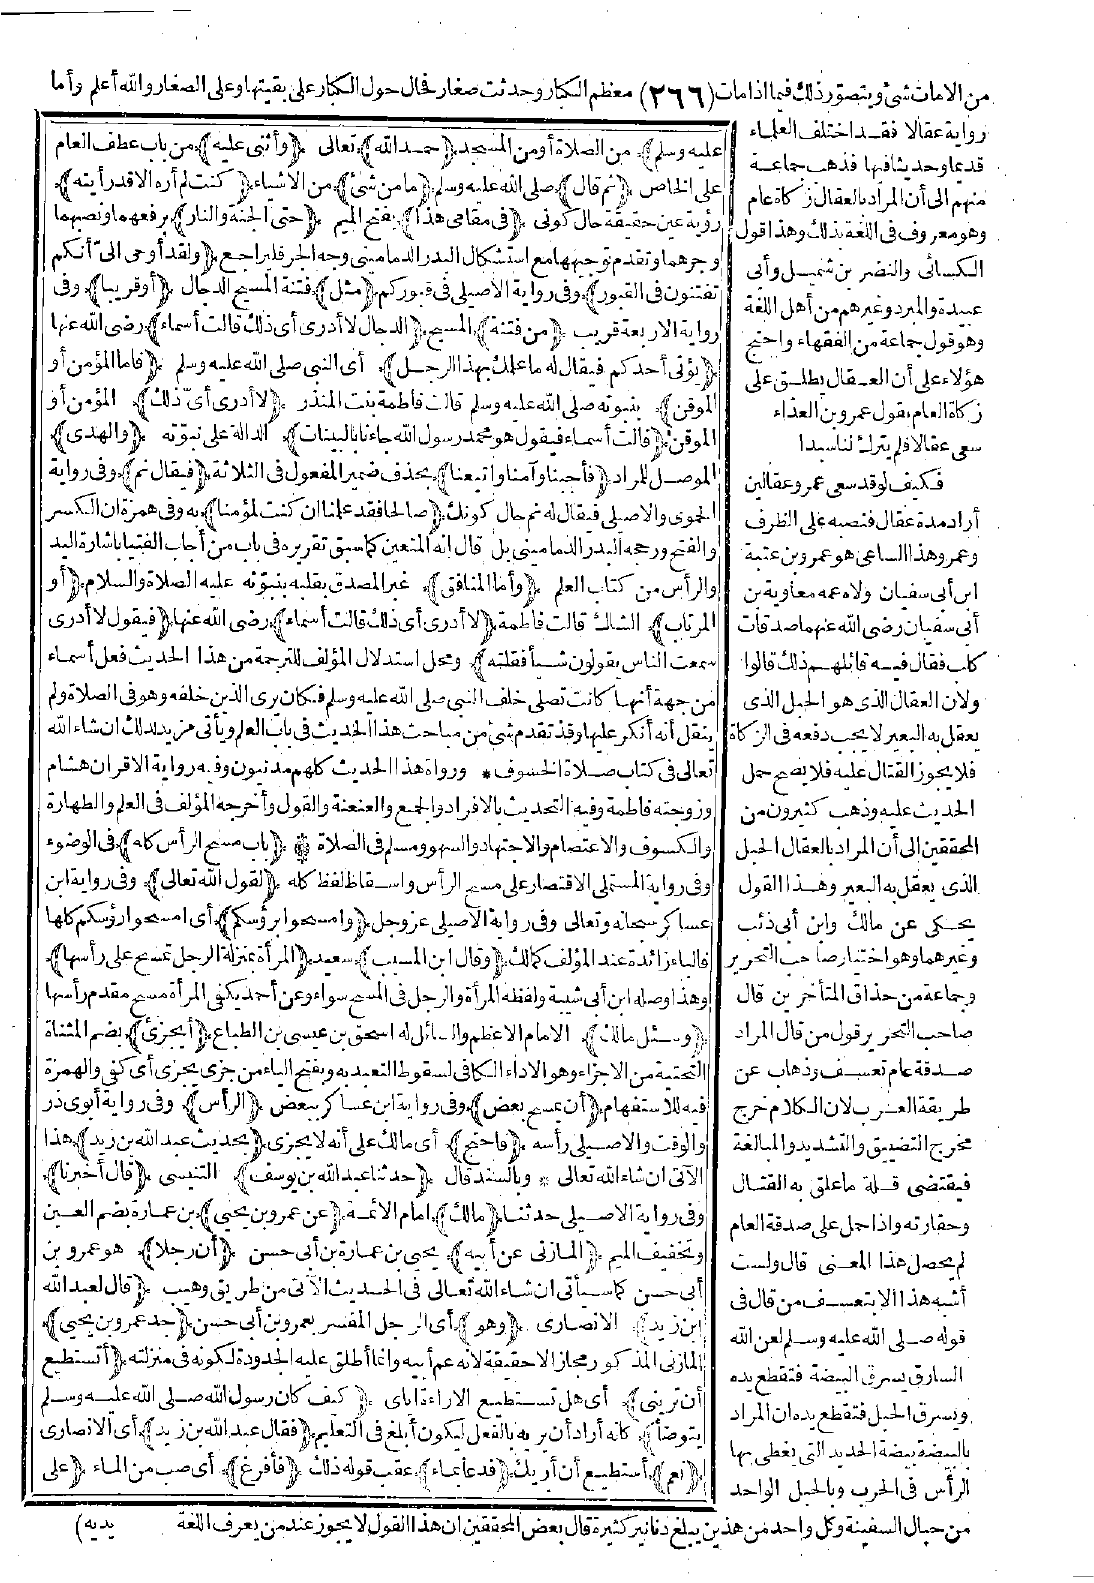 من الامات شئ ويتصور ذلك فيما اذا مات (٢٦٦) معظم الكبار وحدثت صغار فحال حول الكبار على بقيتها وعلى الصغار والله أعلم وأما
رواية عقالا فقد اختلف العلماء
قديما وحديثا فيها فذهب جماعة
منهم الى أن المراد بالعقال زكاة عام
وهو معروف فى اللغة بذلك وهذا قول
الكسائى والنضر بن شميل وأبى
عبيدة والمبرد وغيرهم من أهل اللغة
وهو قول جماعة من الفقهاء واحتج
هؤلاء على أن العقال يطلق على
زكاة العام بقول عمرو بن العداء
سعى عقالا فلم يترك لنا سبدا
فكيف لو قد سعى عمرو عقالين
أراد مدة عقال فنصبه على الظرف
وعمرو هذا الساعى هو عمرو بن عتبة
ابن أبى سفيان ولاه عمه معاوية بن
أبى سفيان رضى الله عنهما صدقات
كلب فقال فيه قائلهم ذلك قالوا
ولان العقال الذى هو الحبل الذى
يعقل به البعير لا يجب دفعه فى الزكاة
فلا يجوز القتال عليه فلا يصح حمل
الحديث عليه وذهب كثيرون من
المحققين الى أن المراد بالعقال الحبل
الذى يعقل به البعير وهذا القول
يحكى عن مالك وابن أبى ذئب
وغيرهما وهو اختيار صاحب التحرير
وجماعة من حذاق المتأخرين قال
صاحب التحرير قول من قال المراد
صدقة عام تعسف وذهاب عن
طريقة العرب لان الكلام خرج
مخرج التضييق والتشديد والمبالغة
فيقتضى قلة ما علق به القتال
وحقارته واذا حمل على صدقة العام
لم يحصل هذا المعنى قال ولست
أشبه هذا الا بتعسف من قال فى
قوله صلى الله عليه وسلم لعن الله
السارق يسرق البيضة فتقطع يده
ويسرق الحبل فتقطع يده ان المراد
بالبيضة بيضة الحديد التى يغطى بها
الرأس فى الحرب وبالحبل الواحد
من حبال السفينة وكل واحد من هذين يبلغ دنانير كثيرة قال بعض المحققين ان هذا القول لا يجوز عند من يعرف اللغة
عليه وسلم) من الصلاة أو من المسجد (حمد الله) تعالى (وأثنى عليه) من باب عطف العام
على الخاص (ثم قال) صلى الله عليه وسلم (ما من شئ) من الاشياء (كنت لم أره الا قد رأيته)
رؤية عين حقيقة حال كونى (فى مقامى هذا) بفتح الميم (حتى الجنة والنار) برفعهما ونصبهما
وجرهما وتقدم توجيهها مع استشكال البدر الدمامينى وجه الجر فليراجع (ولقد أوحى الىّ أنكم
تفتنون فى القبور) وفى رواية الأصيلى فى قبوركم (مثل) فتنة المسيح الدجال (أو قريبا) وفى
رواية الاربعة قريب (من فتنة) المسيح (الدجال لا أدرى أى ذلك قالت أسماء) رضى الله عنها
(يؤتى أحدكم فيقال له ما علمك بهذا الرجل) أى النبى صلى الله عليه وسلم (فاما المؤمن أو
الموقن) بنبوته صلى الله عليه وسلم قالت فاطمة بنت المنذر (لا أدرى أىّ ذلك) المؤمن أو
الموقن (قالت أسماء فيقول هو محمد رسول الله جاءنا بالبينات) الدالة على نبوته (والهدى)
الموصل للمراد (فأجبنا وآمنا واتبعنا) بحذف ضمير المفعول فى الثلاثة (فيقال نم) وفى رواية
الحموى والاصيلى فيقال له نم حال كونك (صالحا فقد علمنا ان كنت لمؤمنا) به وفى همزة ان الكسر
والفتح ورجحه البدر الدمامينى بل قال انه المتعين كما سبق تقريره فى باب من أجاب الفتيا باشارة اليد
والرأس من كتاب العلم (وأما المنافق) غير المصدق بقلبه بنبوته عليه الصلاة والسلام (أو
المرتاب) الشاك قالت فاطمة (لا أدرى أى ذلك قالت أسماء) رضى الله عنها (فيقول لا أدرى
سمعت الناس يقولون شيأ فقلته) ومحل استدلال المؤلف للترجمة من هذا الحديث فعل أسماء
من جهة أنها كانت تصلى خلف النبى صلى الله عليه وسلم فكان يرى الذين خلفه وهو فى الصلاة ولم
ينقل أنه أنكر عليها وقد تقدم شئ من مباحث هذا الحديث فى باب العلم ويأتى مزيد لذلك ان شاء الله
تعالى فى كتاب صلاة الخسوف * ورواة هذا الحديث كلهم مدنيون وفيه رواية الاقران هشام
وزوجته فاطمة وفيه التحديث بالافراد والجمع والعنعنة والقول وأخرجه المؤلف فى العلم والطهارة
والكسوف والاعتصام والاجتهاد والسهو ومسلم فى الصلاة * (باب مسح الرأس كله) فى الوضوء
وفى رواية المستملى الاقتصار على مسح الرأس واسقاط لفظ كله (لقول الله تعالى) وفى رواية ابن
عساكر سبحانه وتعالى وفى رواية الاصيلى عز وجل (وامسحوا برؤسكم) أى امسحوا رؤسكم كلها
فالباء زائدة عند المؤلف كمالك (وقال ابن المسيب) سعيد (المرأة بمنزلة الرجل تمسح على رأسها)
وهذا وصله ابن أبى شيبة ولفظه المرأة والرجل فى المسح سواء وعن أحمد يكفى المرأة مسح مقدم رأسها
(وسئل مالك) الامام الاعظم والسائل له اسحق بن عيسى بن الطباع (أيجزئ) بضم المثناة
التحتية من الاجزاء وهو الاداء الكافى لسقوط التعبد به وبفتح الياء من جزى يجزى أى كفى والهمزة
فيه للاستفهام (أن يمسح بعض) وفى رواية ابن عساكر ببعض (الرأس) وفى رواية أبوى ذر
والوقت والاصيلى رأسه (فاحتج) أى مالك على أنه لا يجزى (بحديث عبد الله بن زيد) هذا
الآتى ان شاء الله تعالى * وبالسند قال (حدثنا عبد الله بن يوسف) التنيسى (قال أخبرنا)
وفى رواية الاصيلى حدثنا (مالك) امام الائمة (عن عمرو بن يحيى) بن عمارة بضم العين
وتخفيف الميم (المازنى عن أبيه) يحيى بن عمارة بن أبى حسن (أن رجلا) هو عمرو بن
أبى حسن كما سيأتى ان شاء الله تعالى فى الحديث الآتى من طريق وهيب (قال لعبد الله
ابن زيد) الانصارى (وهو) أى الرجل المفسر بعمرو بن أبى حسن (جد عمرو بن يحيى)
المازنى المذكور مجازا لا حقيقة لانه عم أبيه وانما أطلق عليه الجدودة لكونه فى منزلته (أتستطيع
أن ترينى) أى هل تستطيع الاراءة اياى (كيف كان رسول الله صلى الله عليه وسلم
يتوضأ) كأنه أراد أن يريه بالفعل ليكون أبلغ فى التعليم (فقال عبد الله بن زيد) أى الانصارى
(نعم) أستطيع أن أريك (فدعا بماء) عقب قوله ذلك (فأفرغ) أى صب من الماء (على
يديه)